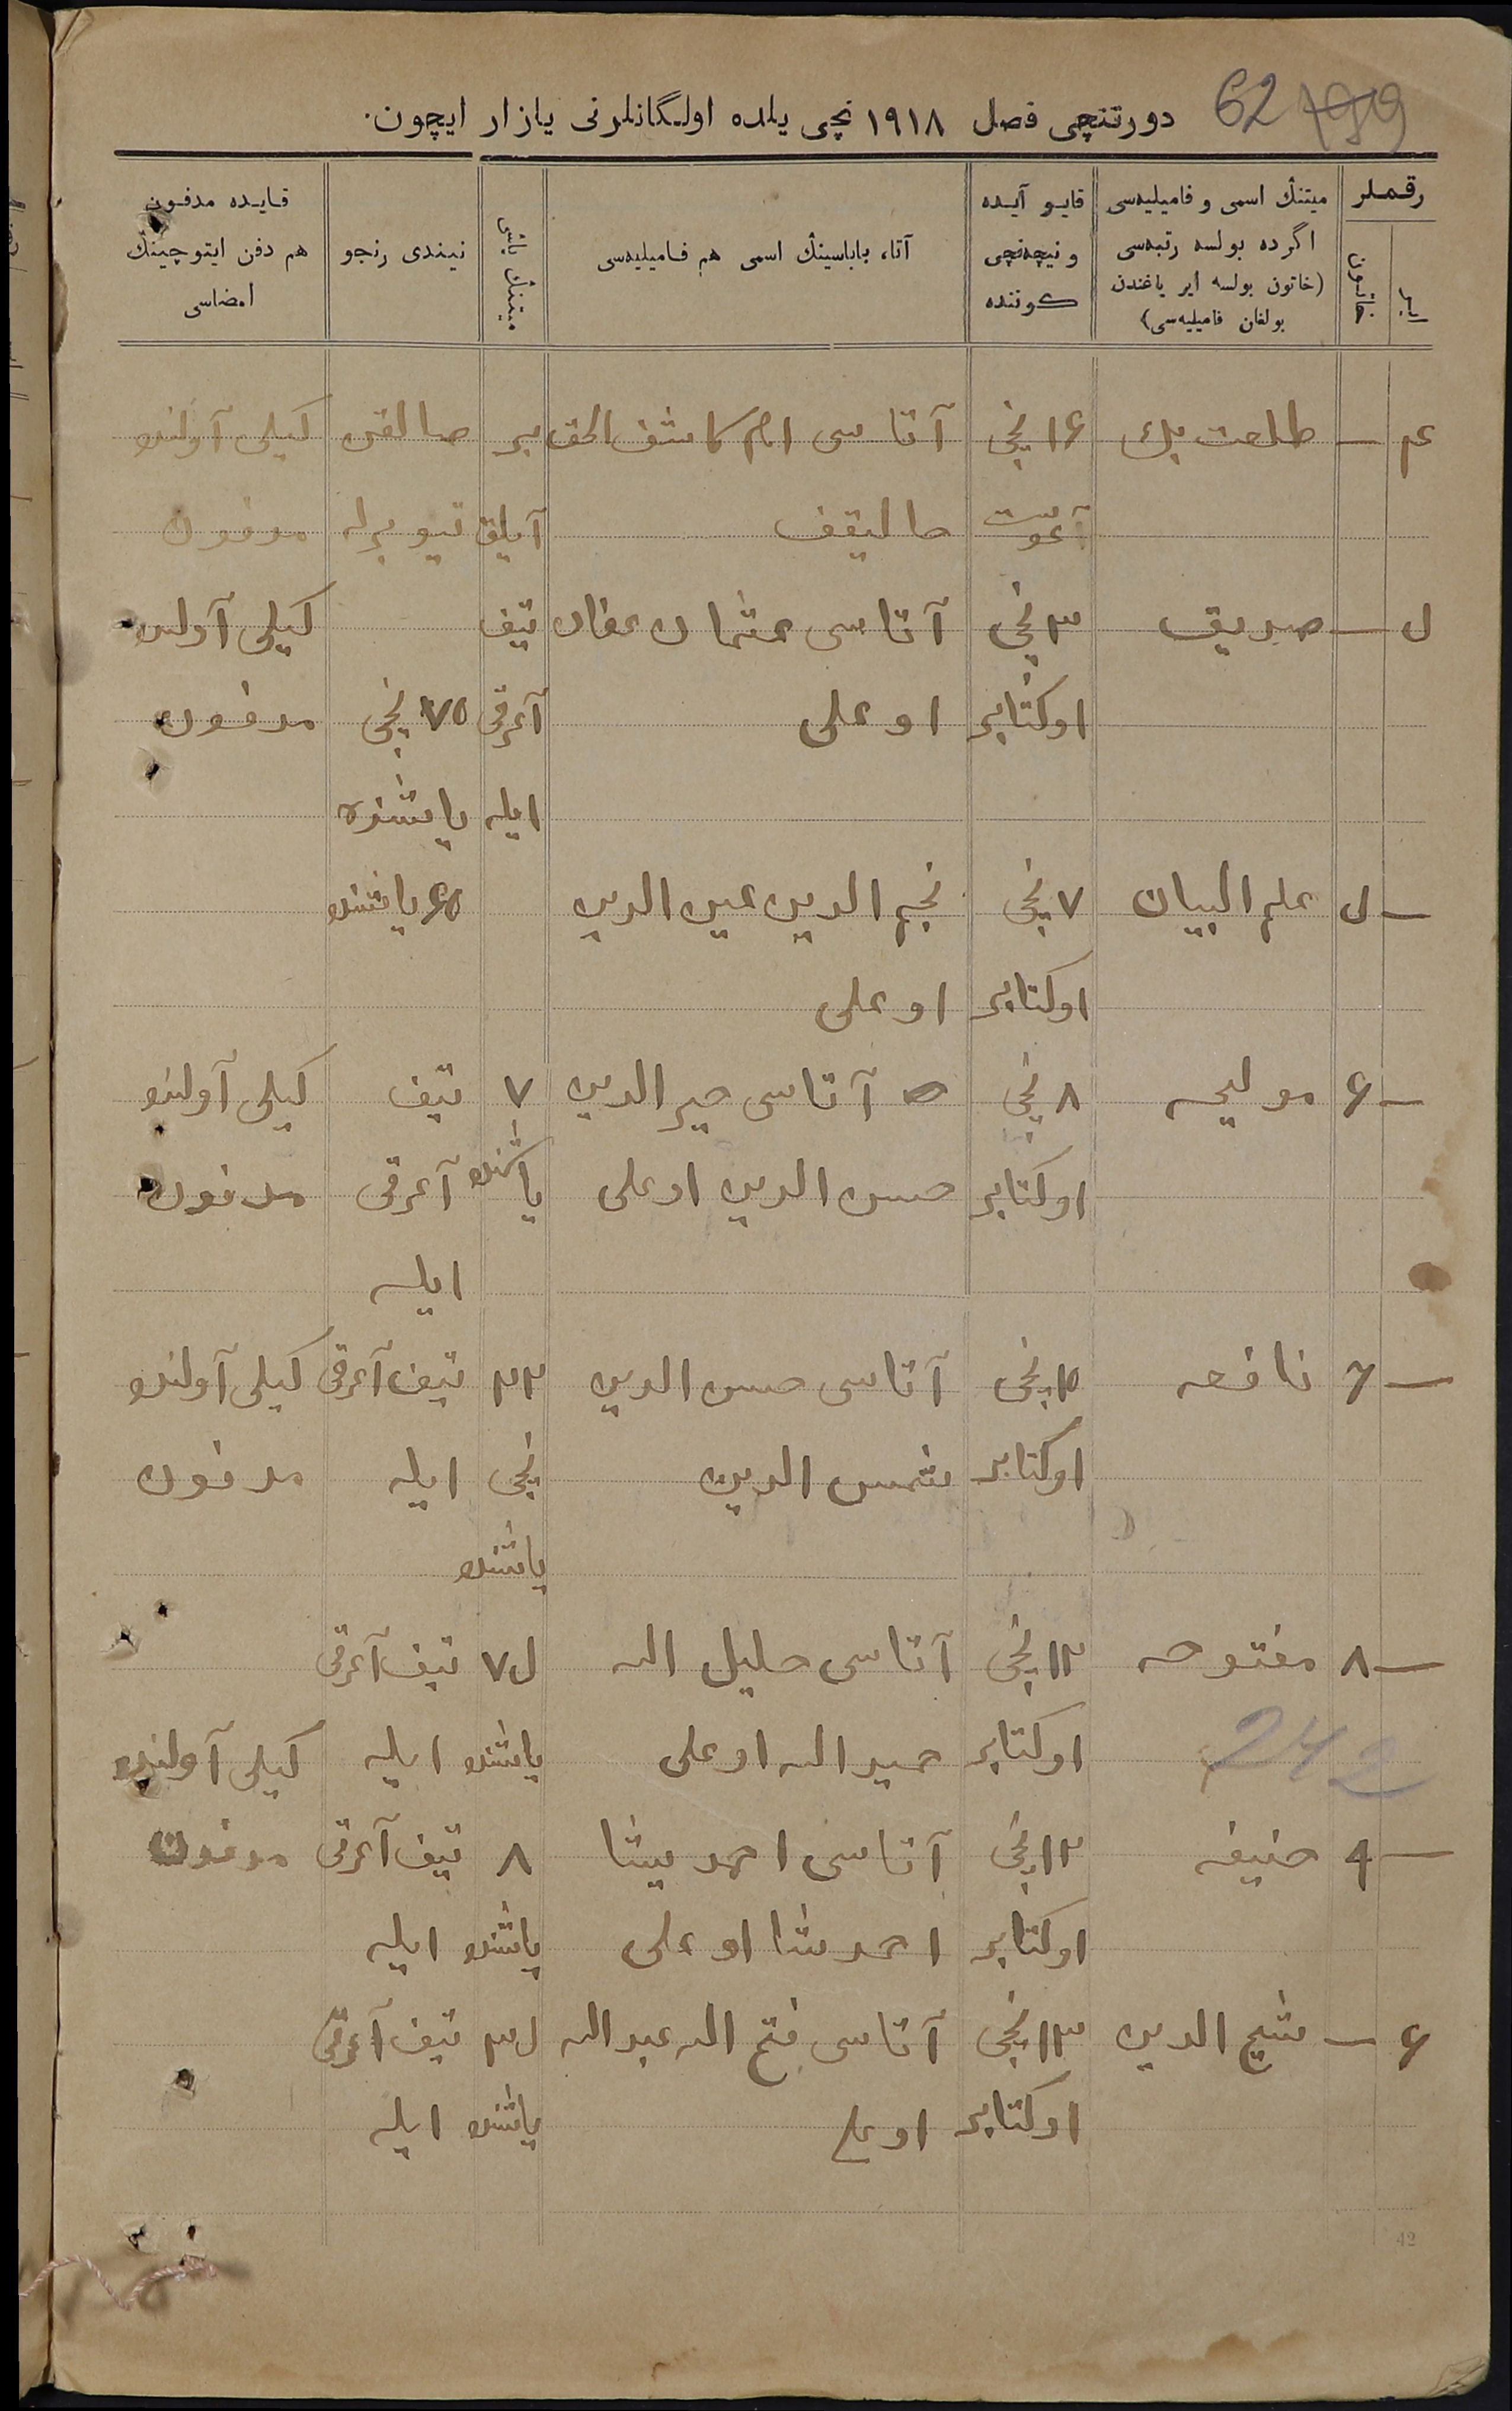 62 799
دورتنچی فصل ۱۹۱۸ نچی یلده اولگانلرنی یازار ایچون.
رقملر
ایر
خاتون
میتنڭ اسمی و فامیلیه‌سی
اگرده بولسه رتبه‌سی
(خاتون بولسه ایر یاغندن
بولغان فامیلیه‌سی)
قایو آیده
و نیچه‌نچی
كوننده
آتا، باباسینڭ اسمی هم فامیلیه‌سی
میتنڭ یاشی
نیندی رنجو
قایده مدفون
هم دفن ایتوچینڭ
امضاسی
— طلعت بك ۱۶ نچی آتاسی امام کاشف الحق بر صالقن کیلی آولنده
آغوست صالیقف آیلق تیو برله مدفون
۵ — صدیق ۳ نچی آتاسی عثمان عفان تیف کیلی آولنده
اوکتابر اوغلی آغرقی ۷۵ نچی مدفون
ایله یاشنده
— ۵ علم البیان ۷ نچی نجم الدین عین الدین ۶۵ یاشنده
اوکتابر اوغلی
— ۶ مولیحه ۸ نچی آتاسی خیر الدین ۷ تیف کیلی آولنده
اوکتابر حسن الدین اوغلی یاشنده آغرقی مدفون
ایله
— 7 نافعه نچی آتاسی حسن الدین ۲۳ تیف آغرقی کیلی آولنده
اوکتابر شمس الدین نچی ایله مدفون
یاشنده
— ۸ مفتوحه ۱۲ نچی آتاسی خلیل الله ۷ تیف آغرقی
اوکتابر حمید الله اوغلی یاشنده ایله کیلی آولنده
— ۹ حنیفه ۱۲ نچی آتاسی احمد یشا ۸ تیف آغرقی مدفون
اوکتابر احمد شا اوغلی یاشنده ایله
۶ — شیخ الدین ۱۳ نچی آتاسی فتح الله عبد الله تیف آغرقی
اوکتابر اوغلی یاشنده ایله
42